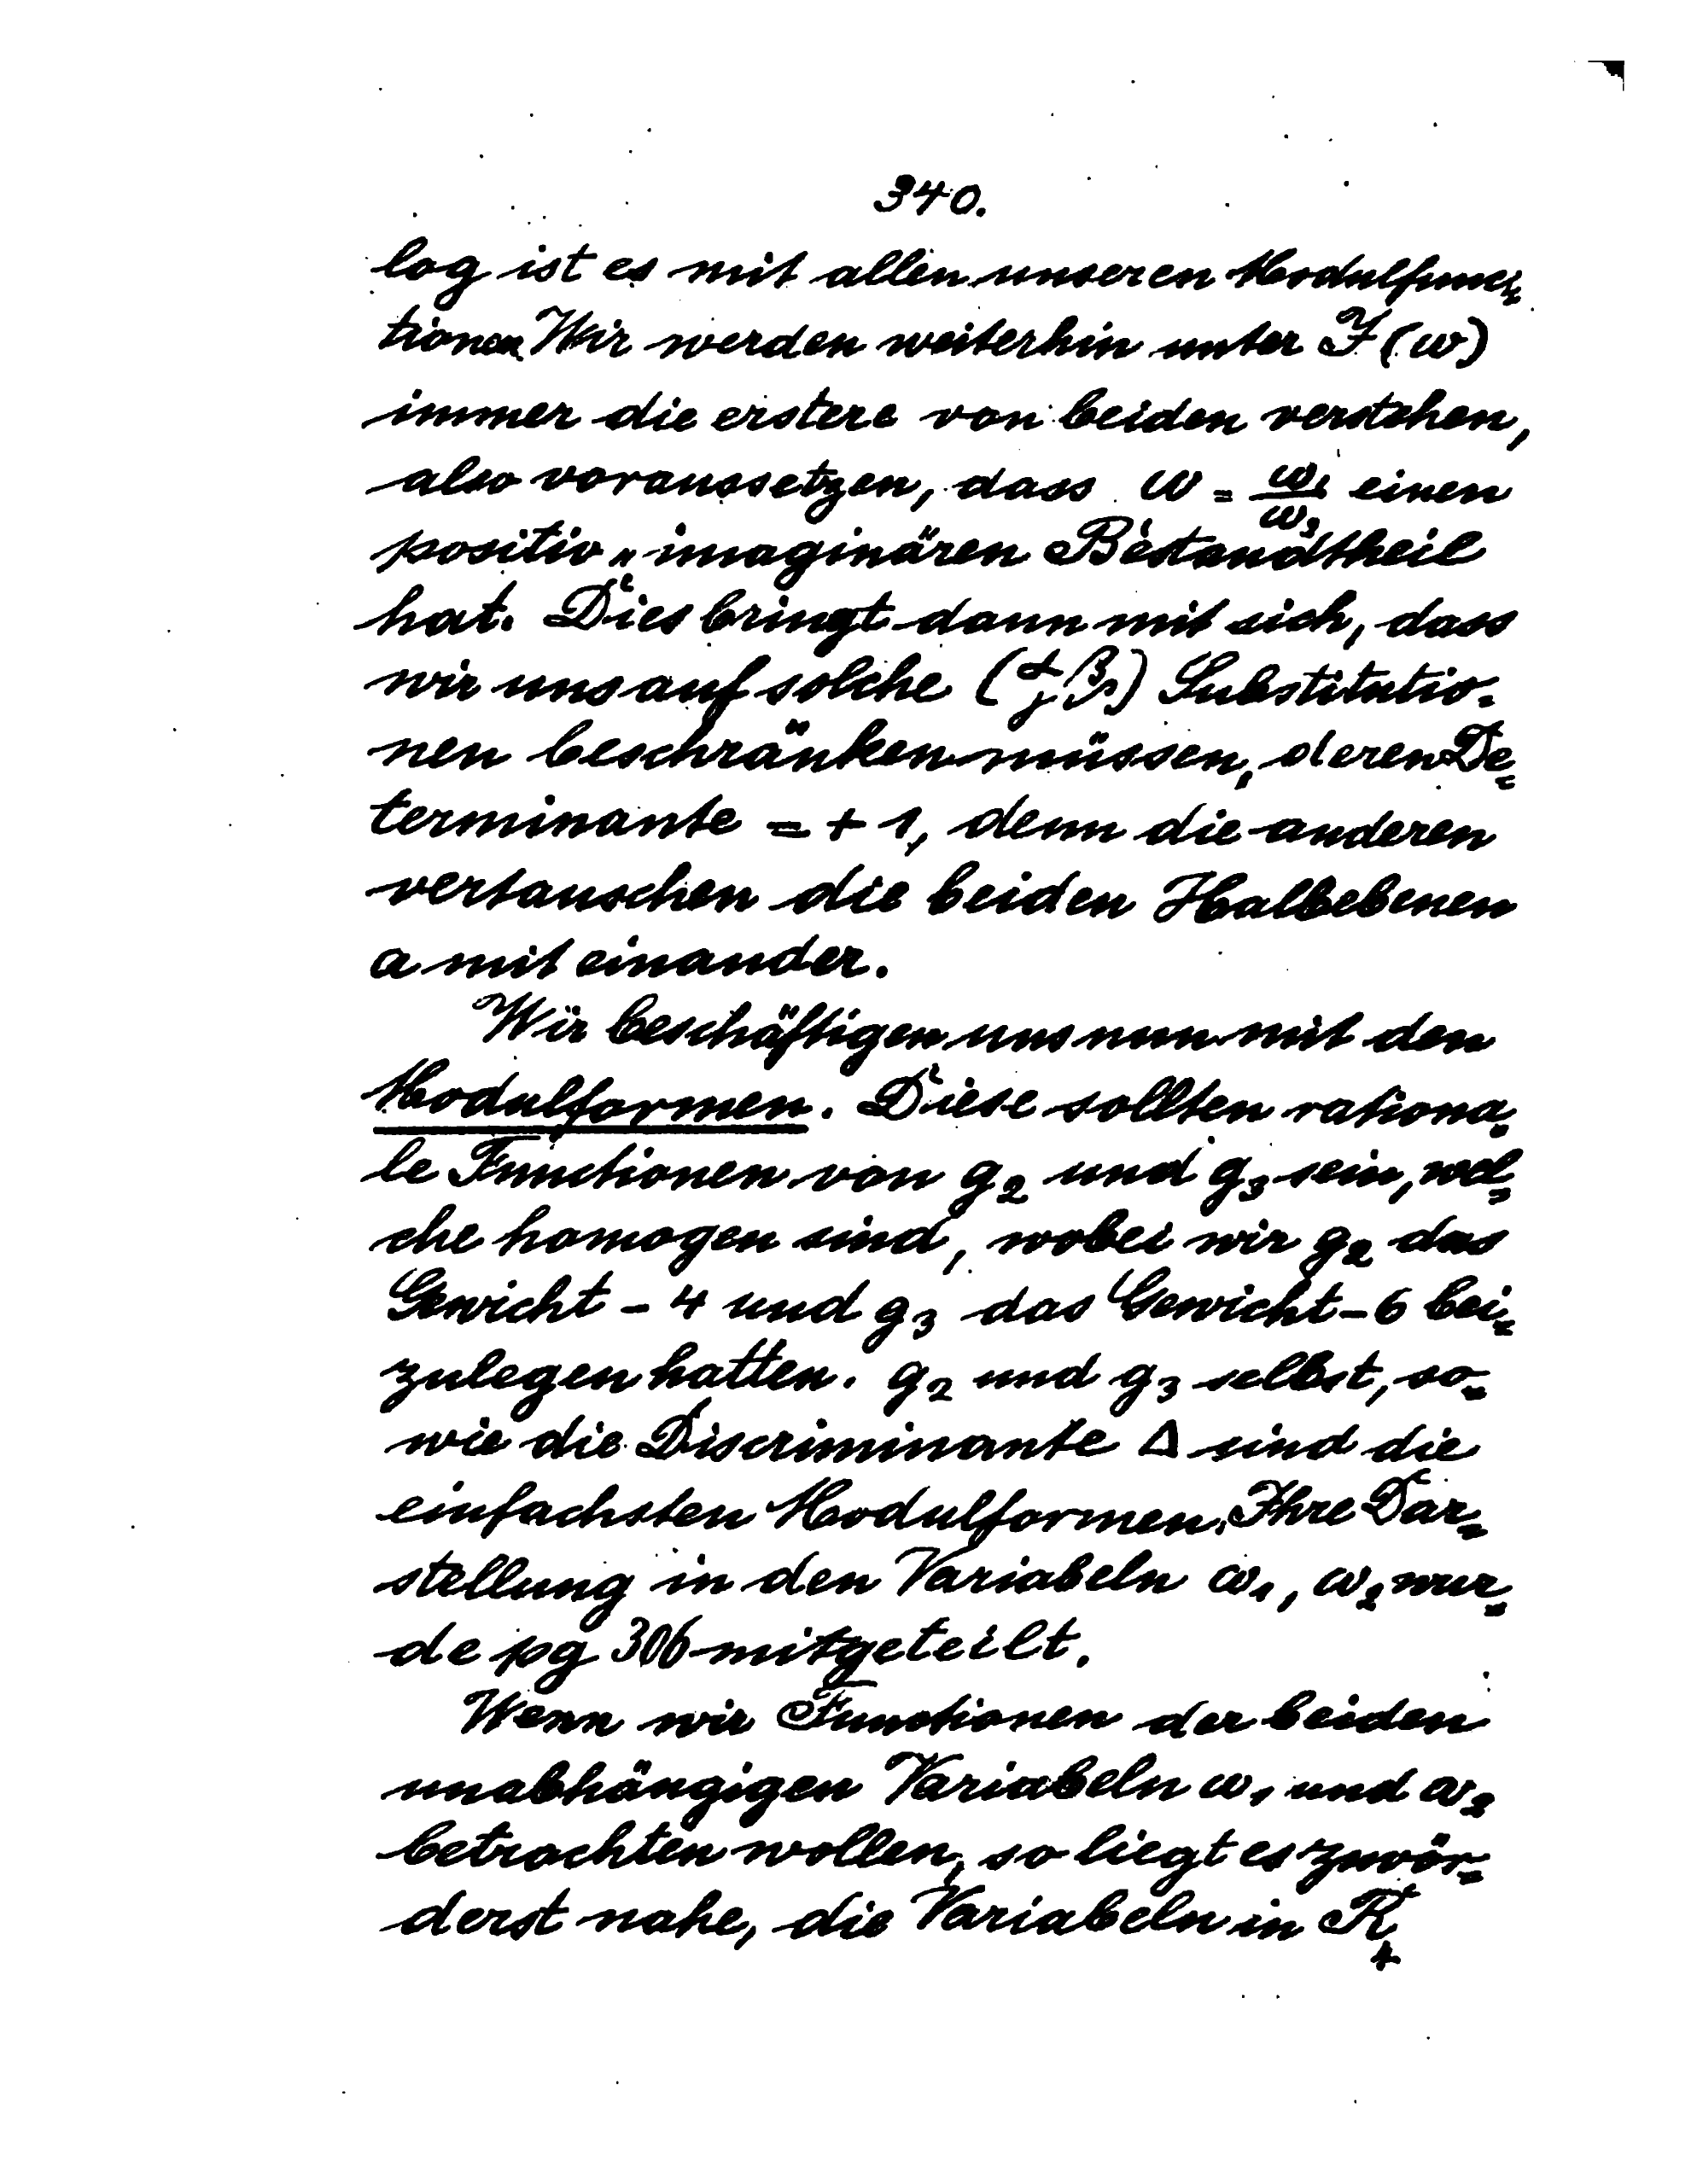 340.
log ist es mit allen unseren Modulfunc-
tionen Wir werden weiterhin unter J (ω)
immer die erstere von beiden verstehen,
also voraussetzen, dass ω = ω₁/ω₂ einen
positiv-imaginären Bestandtheil
hat. Dies bringt dann mit sich, dass
wir uns auf solche (α β γ δ) Substitutio-
nen beschränken müssen, deren De-
terminante = + 1, denn die anderen
vertauschen die beiden Halbebenen
ω mit einander.
Wir beschäftigen uns nun mit den
Modulformen. Diese sollten rationa-
le Functionen von g₂ und g₃ sein, wel-
che homogen sind, wobei wir g₂ das
Gewicht - 4 und g₃ das Gewicht - 6 bei-
zulegen hatten. g₂ und g₃ selbst, so-
wie die Discriminante Δ sind die
einfachsten Modulformen. Ihre Dar-
stellung in den Variabeln ω₁, ω₂ wur-
de pg 306 mitgeteilt.
Wenn wir Functionen der beiden
unabhängigen Variabeln ω₁ und ω₂
betrachten wollen, so liegt es zuvör-
derst nahe, die Variabeln in R₄